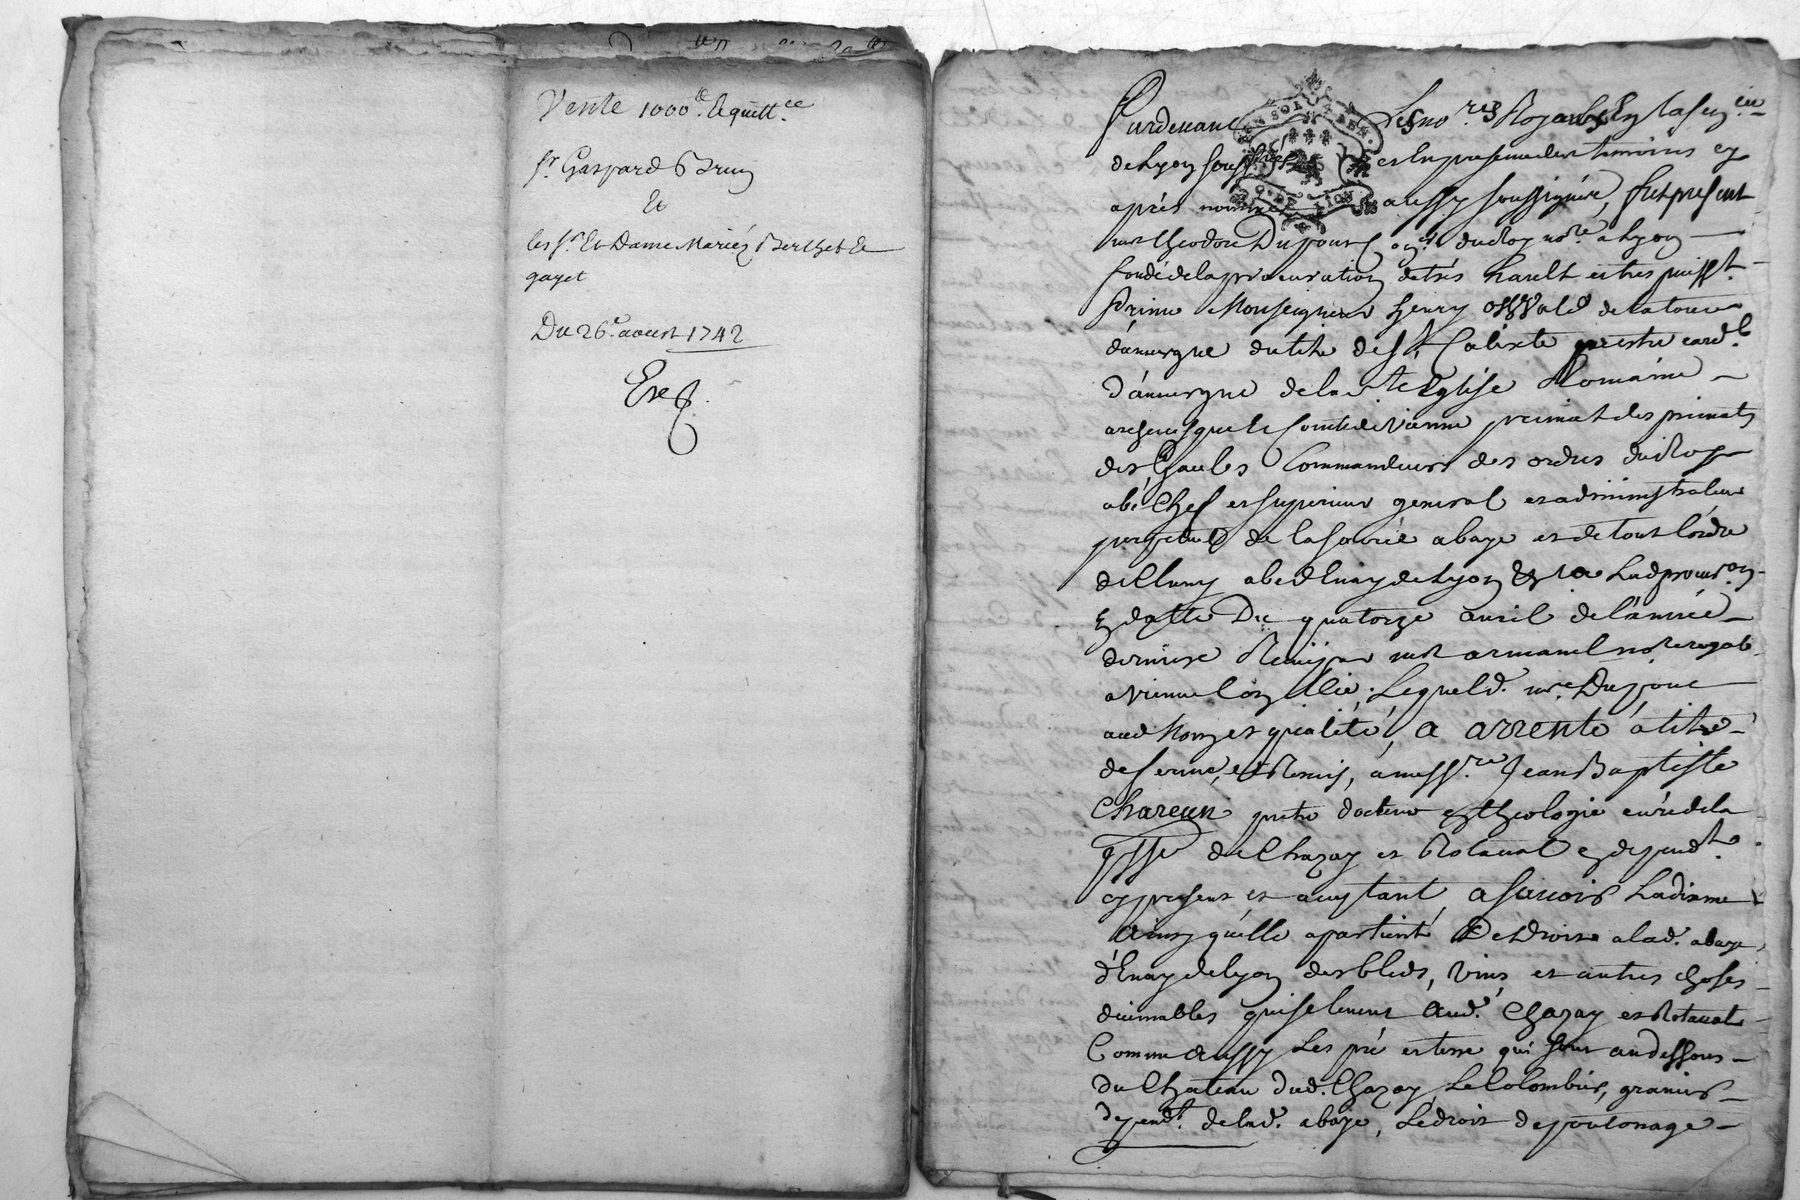 Vente 1000 tt. Et quitt.ce
Sr. Gaspard Brun
Et
les Sr. Et Dame Mariéz Berthet Et
gayet
Du 26e. aoust 1742
Exp.
Pardevant Les no.res Royaux En la sen.ée
de Lyon souss.nés et En presence des temoins cy
après nommés aussy soussignéz, fut present
mre theodore Dupour Con.er du Roy no.re a Lyon
fondé de la procuration de très hault et tres puiss.t
Prince Monseigneur henry osWald de la tour
d'auvergne du titre de St Calixte prestre card.l
D'auvergne de la ste Eglise Romaine
archevesque Et Comte de Vienne primat des primats
des Gaules Commandeur des ordres du Roy
abé Chef et superieur general et administrateur
perpetuel de la sacrée abaye et de tout l'ordre
de Cluny abé d'Enay de Lyon Lad procur.on
En datte Du quatorze avril de l'année
derniere Reçüe par mre armanet no.re royal
a Vienne Lequel d. mre. Dupour
aud Nom et qualité, a arrenté à titre
de ferme, et Remis, a mess.re Jean Baptiste
Chareun prêtre docteur En theologie curé de la
psse de Chazay et Rotaval En depend.t
cy present et acceptant, a sçavoir La disme
Ainsy qu'elle apartient De droit a lad. abaye
d'Enay de Lyon des bleds, vins et autres choses
decimables qui se levent Aud. Chazay et Rotaval
Comme aussy Les pré et terre qui sont au dessous
du Chateau dud. Chazay, Le Colombier, greniers
depend.t de lad. abaye, Le droit de pontonage